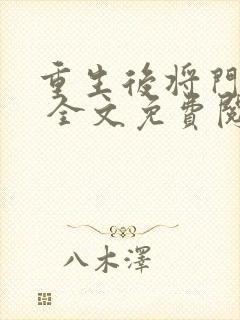 重生後将門
全文免費閱
八木澤